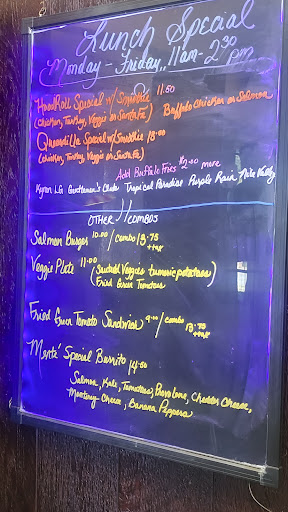 Lunch Special
Monday - Friday, 11am - 2:30 pm
HandRoll Special w/ Smoothie 11.50
(Chicken, Turkey, Veggie or Santa Fe) Buffalo Chicken or Salmon
Quesadilla Special w/ Smoothie 13.00
(chicken, Turkey, Veggie or Santa Fe)
Add Buffalo Fries $2.00 more
Gentlemen's Tropical Paradise Purple Rain
OTHER COMBOS
Salmon Burger 10.00 / combo 13.75
+tax
Veggie Plate 11.00 (Sauteed Veggies tumeric potatoes)
(Fried Green Tomatoes
Fried Green Tomato Sandwich 9.00 / combo
13.75
+tax
Special Burrito 14.50
Salmon, Kale, Tomatoes, Provolone, Cheddar Cheese,
Monterey Cheese, Banana Peppers